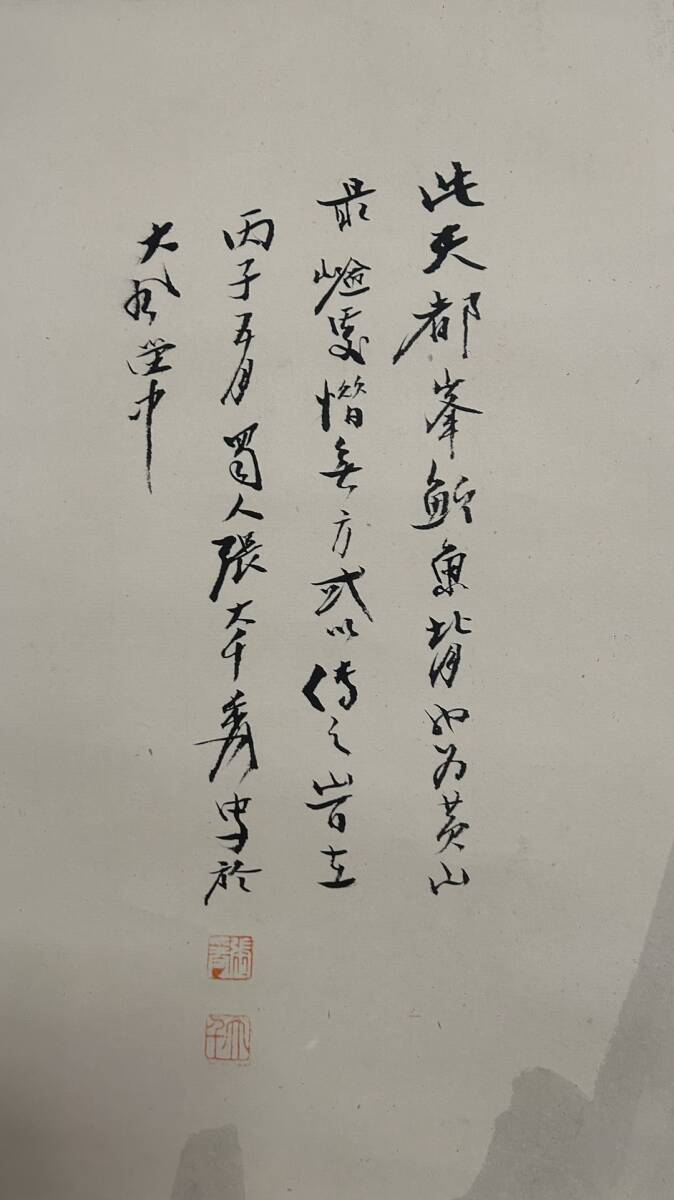 此天都峯鯽魚背也為黃山
最嶮處惜無方弍以傳之峕在
丙子五月蜀人張大千爰写於
大風堂中
張爰
大千